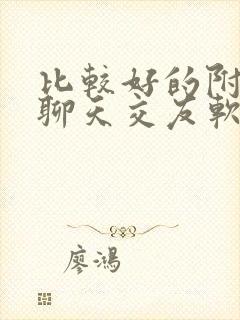 比較好的附
聊天交友軟
廖鴻